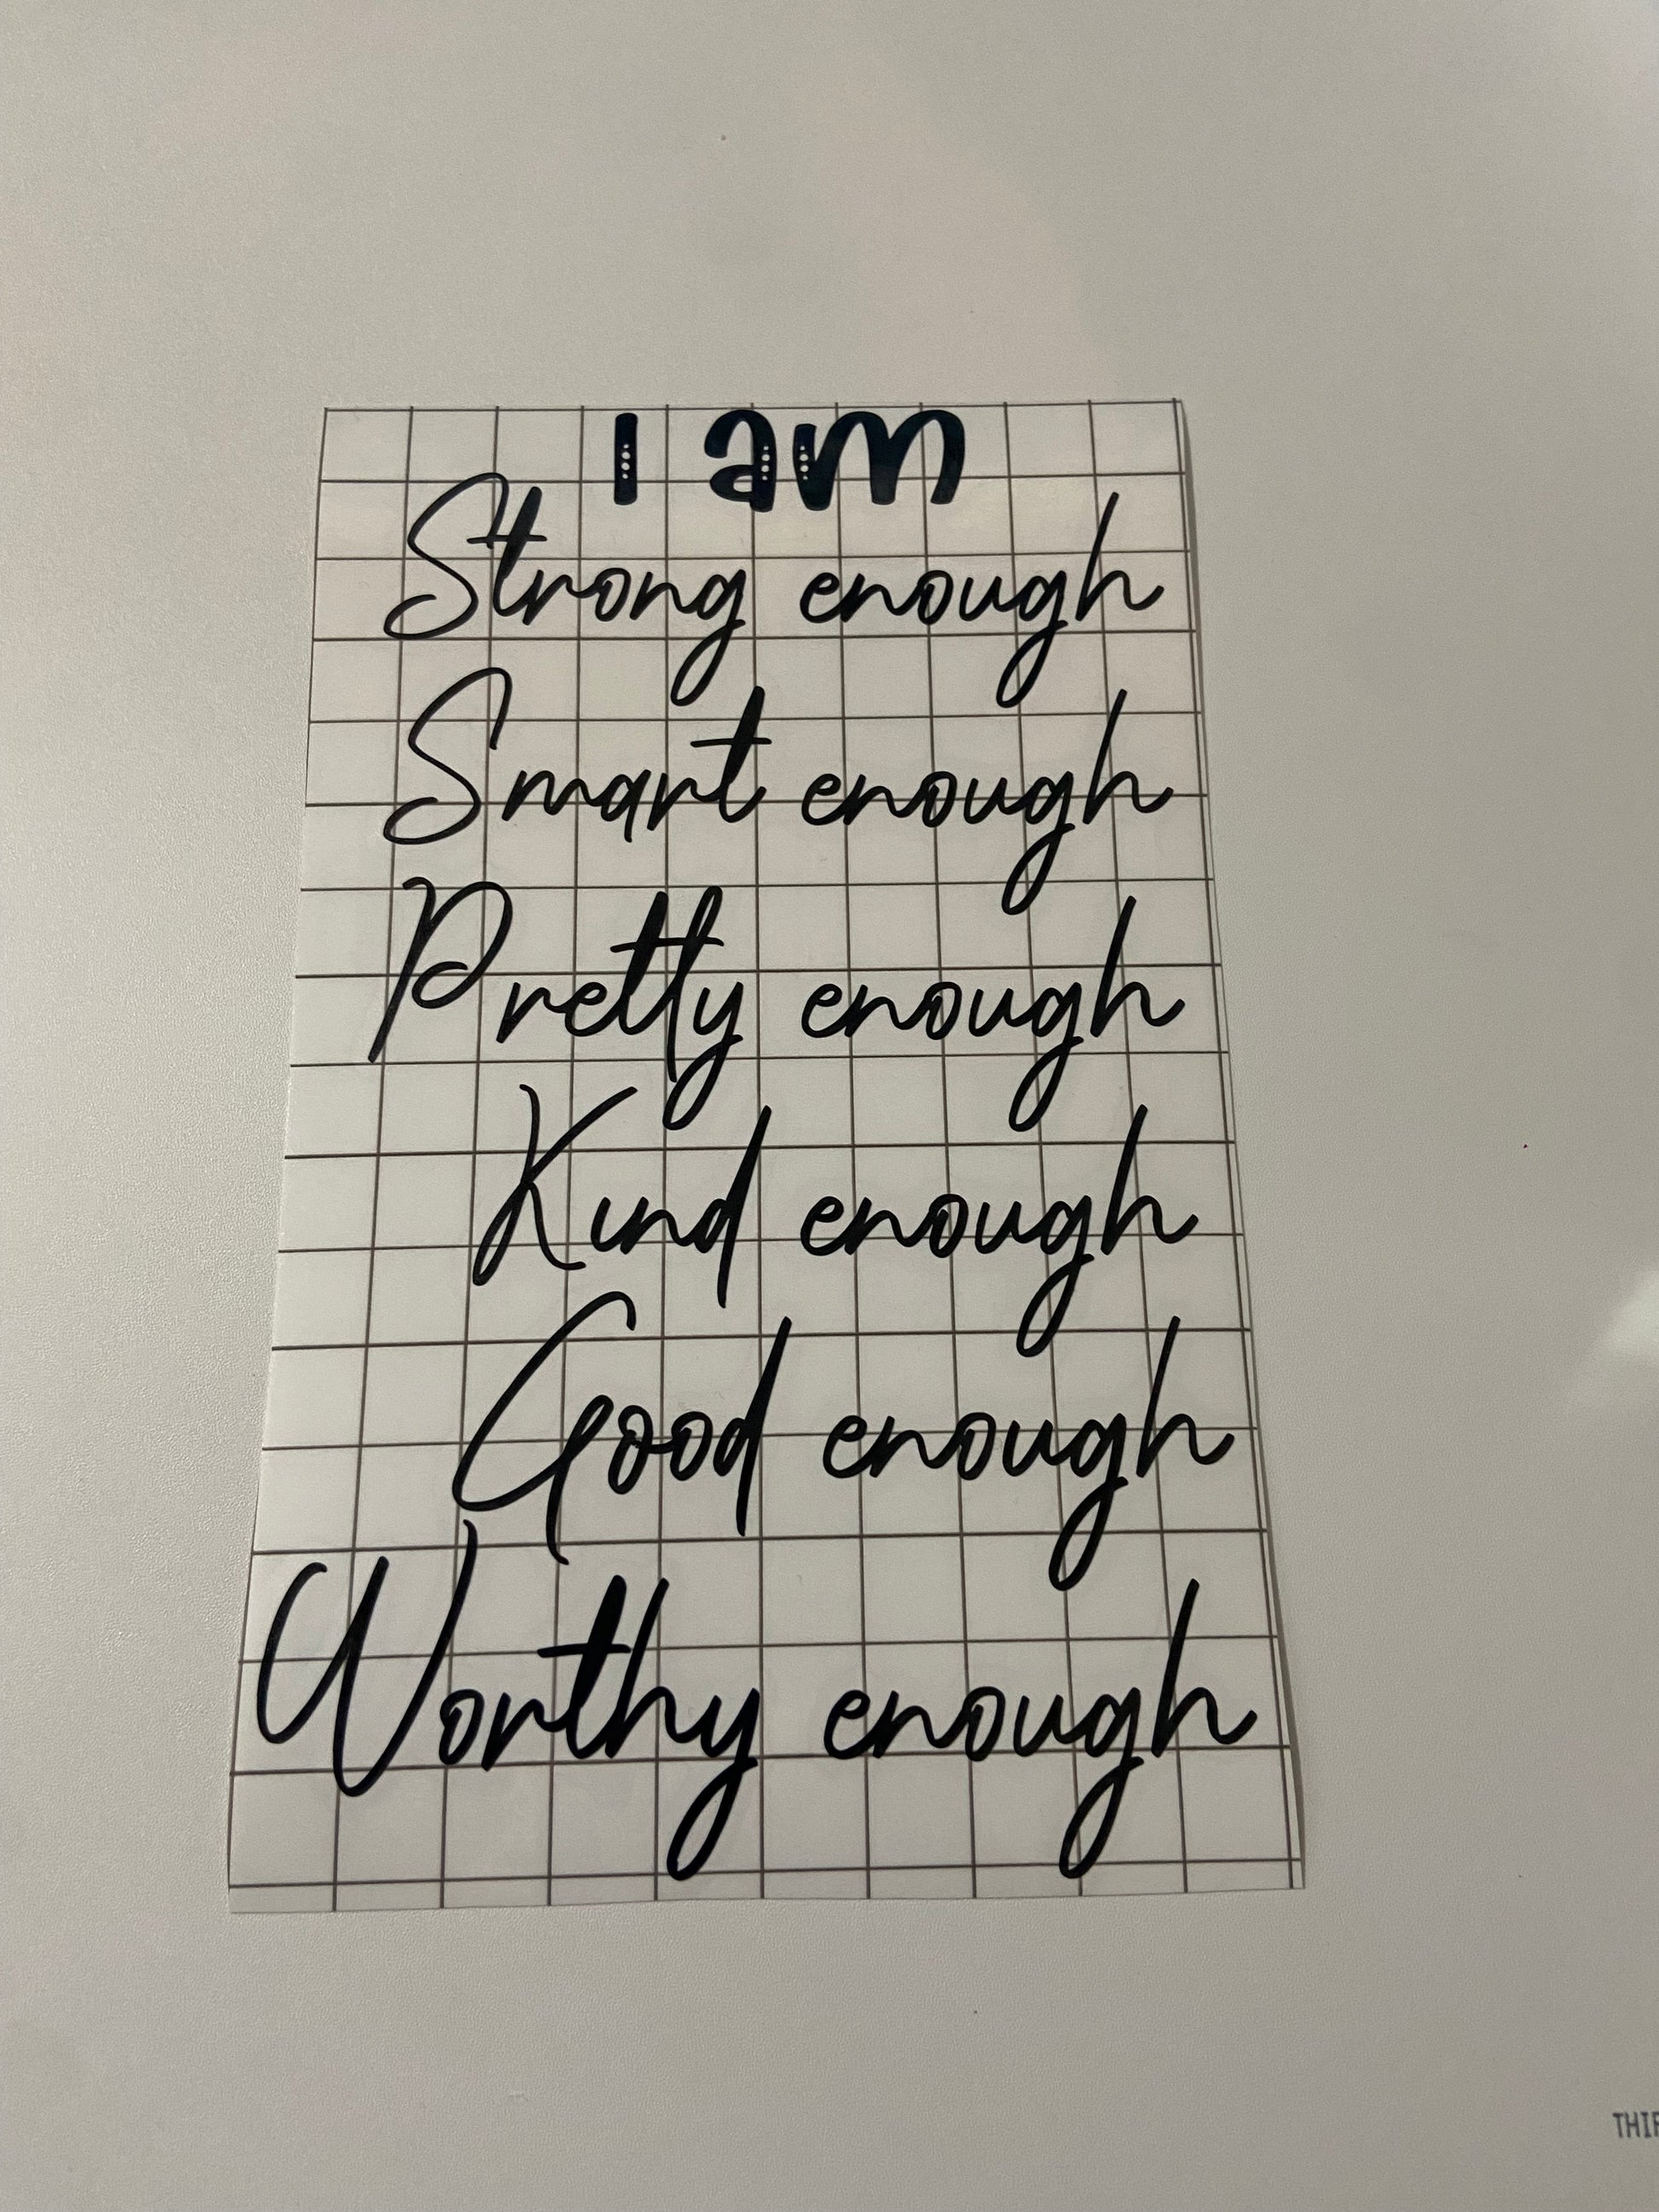 I am
Strong enough
Smart enough
Pretty enough
Kind enough
Good enough
Worthy enough